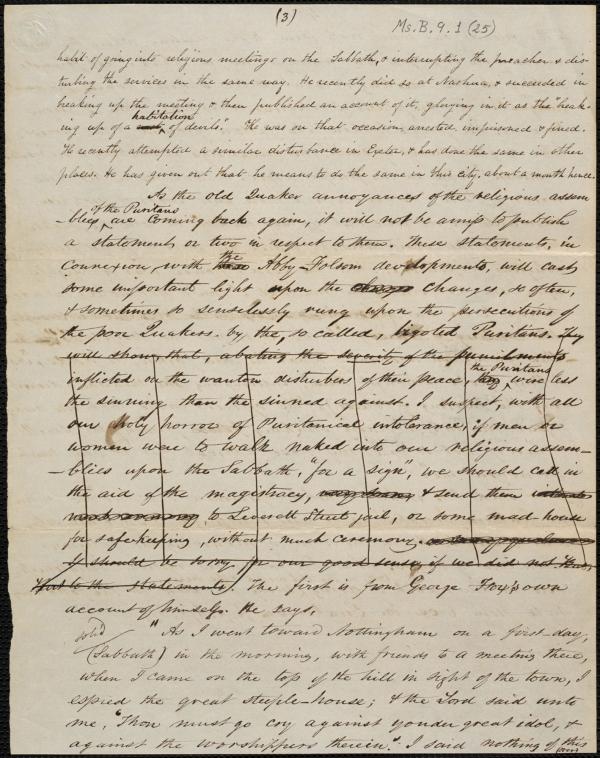 (3)
Ms. B. 9. 1 (25)
habit of going into religious meetings on the Sabbath, & interrupting the preacher & dis-
turbing the services in the same way. He recently did so at Nashua, & succeeded in
breaking up the meeting & then published an account of it, glorying in it as the "break-
habitation
ing up of a of devils". He was on that occasion, arrested, imprisoned & fined.
He recently attempted a similar disturbance in Exeter, & has done the same in other
places. He has given out that he means to do the same in this city, about a month hence.
As the old Quaker annoyances of the religious assem
of the Puritans
-blies, are coming back again, it will not be amiss to publish
a statement or two in respect to them. These statements, in
the
connexion, with these Abby Folsom developments, will cast
some important light upon the changes changes, so often,
& sometimes so senselessly rung upon the persecutions of
the poor Quakers. by the, so called, bigoted Puritans. They
will show, that, abating the severity of the punishments
the Puritans
inflicted on the wanton disturbers of their peace, they were less
the sinning than the sinned against. I suspect, with all
our holy horror of Puritanical intolerance, if men or
women were to walk naked into our religious assem-
-blies upon the Sabbath, "for a sign", we should call in
the aid of the magistracy, & send them
to Leverett Street jail, or some mad-house
for safe-keeping, without much ceremony.
I should be sorry for our good sense, if we did not thus.
But to the statements. The first is from George Fox's own
account of himself. He says,
solid
"As I went toward Nottingham on a first-day,
(Sabbath) in the morning, with friends to a meeting there,
when I came on the top of the hill in sight of the town, I
espied the great steeple-house; & the Lord said unto
me, 'Thou must go cry against yonder great idol, &
against the worshippers therein.' I said nothing of this